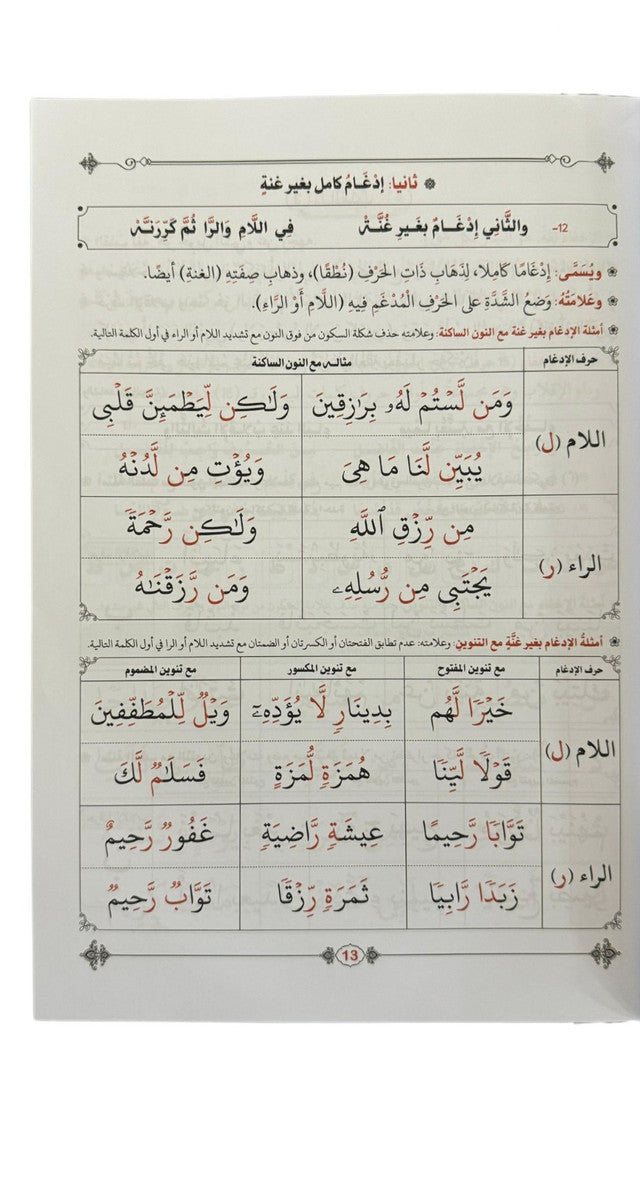 ثانيا: إدْغَـامُ كامل بغير غنةٍ
12- والثَّانِي إدْغَـــامٌ بغَيرِ غُنَّــةْ في اللَّامِ وَالرَّا ثُمَّ كَرِّرَنَّـهْ
ويُسَمَّى: إِدْغَامًا كَامِلا، لِذَهَابِ ذَاتِ الحَرْفِ (نُطْقًا)، وذهابِ صِفَتِهِ (الغنةِ) أيضًا.
وعَلامَتُهُ: وَضعُ الشَّدَّةِ على الحَرْفِ الْمُدْغَمِ فِيهِ (اللَّامِ أَوْ الرَّاءِ).
أمثلة الإدغام بغير غنة مع النون الساكنة: وعلامته حذف شكلة السكون من فوق النون مع تشديد اللام أو الراء في أول الكلمة التالية.
حرف الإدغام مثاله مع النون الساكنة
وَمَن لَّسْتُمْ لَهُۥ بِرَٰزِقِينَ وَلَٰكِن لِّيَطْمَئِنَّ قَلْبِى
اللام (ل)
يُبَيِّن لَّنَا مَا هِىَ وَيُؤْتِ مِن لَّدُنْهُ
مِن رِّزْقِ ٱللَّهِ وَلَٰكِن رَّحْمَةً
الراء (ر)
يَجْتَبِى مِن رُّسُلِهِۦ وَمَن رَّزَقْنَٰهُ
أمثلةُ الإدغامِ بغيرِ غنَّةٍ معَ التنوينِ: وعلامته: عدم تطابق الفتحتان أو الكسرتان أو الضمتان مع تشديد اللام أو الرا في أول الكلمة التالية.
حرف الإدغام مع تنوين المفتوح مع تنوين المكسور مع تنوين المضموم
خَيْرًا لَّهُم بِدِينَارٍ لَّا يُؤَدِّهِۦٓ وَيْلٌ لِّلْمُطَفِّفِينَ
اللام (ل)
قَوْلًا لَّيِّنًا هُمَزَةٍ لُّمَزَةٍ فَسَلَٰمٌ لَّكَ
تَوَّابًا رَّحِيمًا عِيشَةٍ رَّاضِيَةٍ غَفُورٌ رَّحِيمٌ
الراء (ر)
زَبَدًا رَّابِيًا ثَمَرَةٍ رِّزْقًا تَوَّابٌ رَّحِيمٌ
13